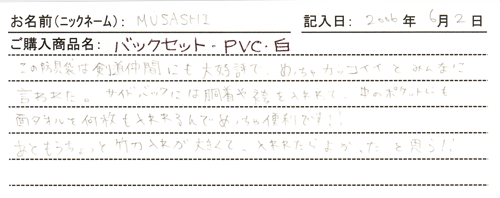 お名前(ニックネーム): MUSASHI 記入日: 2006年 6月 2日
ご購入商品名: バックセット・PVC・白
この防具袋は剣道仲間にも大好評で、めっちゃカッコイイとみんなに
言われた。サイドバックには胴着や袴を入れて、中のポケットにも
面タオルを何枚も入れれるんでめっちゃ便利です!!
あともうちょっと竹刀入れが大きくて、入れれたらよかったと思う!!